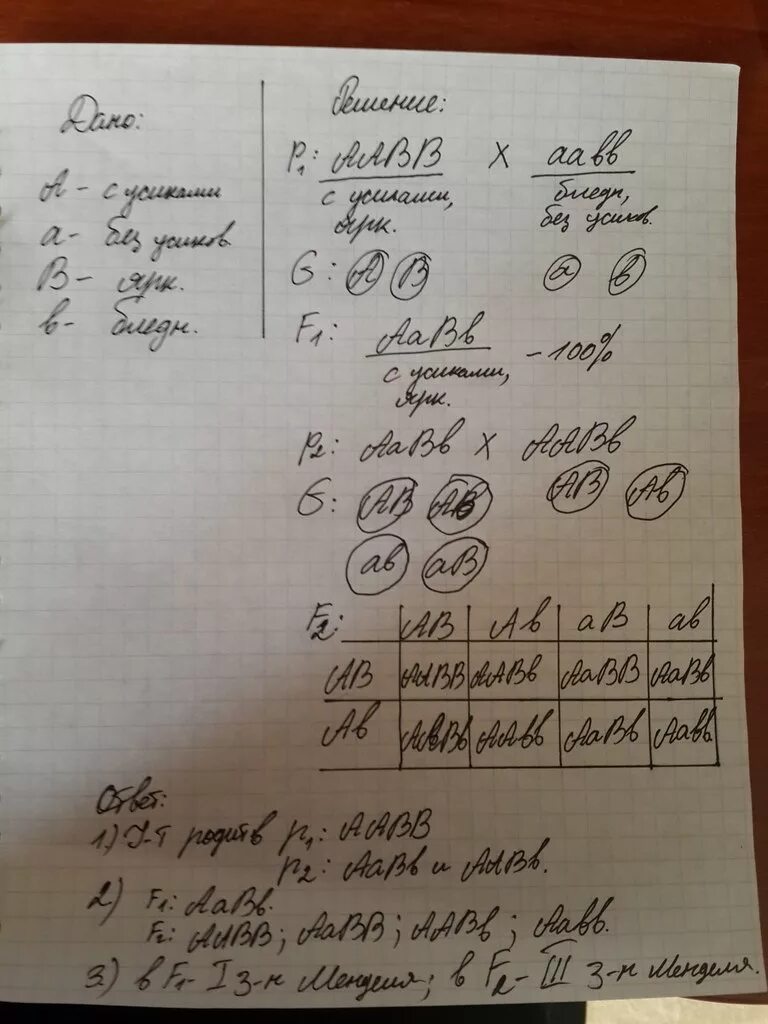 Дано:
А - с усиками
а - без усиков.
В - ярк.
в - бледн.
Решение:
P₁: ААВВ X аавв
с усиками, ярк.
бледн, без усиков.
G: А В а в
F₁: АаВв - 100%
с усиками, ярк.
P₂: АаВв X ААВв
G: АВ Ав АВ Ав
ав аВ
F₂: АВ Ав аВ ав
АВ ААВВ ААВв АаВВ АаВв
Ав ААВв ААвв АаВв Аавв
Ответ:
1) Г-т родит-в p₁: ААВВ
p₂: АаВв и ААВв.
2) F₁: АаВв.
F₂: ААВВ; АаВВ; ААВв; Аавв.
3) в F₁ - I з-н Менделя; в F₂ - III з-н Менделя.